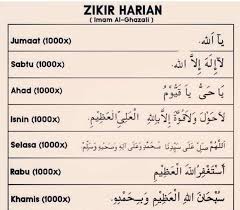 ZIKIR HARIAN
( Imam Al-Ghazali )
Jumaat (1000x) يَا اَللّٰه.
Sabtu (1000x) لَا إِلٰهَ إِلَّا اللّٰه.
Ahad (1000x) يَا حَيُّ يَا قَيُّوْمُ
Isnin (1000x) لَا حَوْلَ وَلَا قُوَّةَ إِلَّا بِاللّٰهِ الْعَلِيِّ الْعَظِيْمِ.
Selasa (1000x) اَللّٰهُمَّ صَلِّ عَلَى سَيِّدِنَا مُحَمَّدٍ وَعَلَى آلِهِ وَصَحْبِهِ وَسَلِّمْ.
Rabu (1000x) أَسْتَغْفِرُ اللّٰهَ الْعَظِيْمَ
Khamis (1000x) سُبْحَانَ اللّٰهِ الْعَظِيْمِ وَبِحَمْدِهِ.